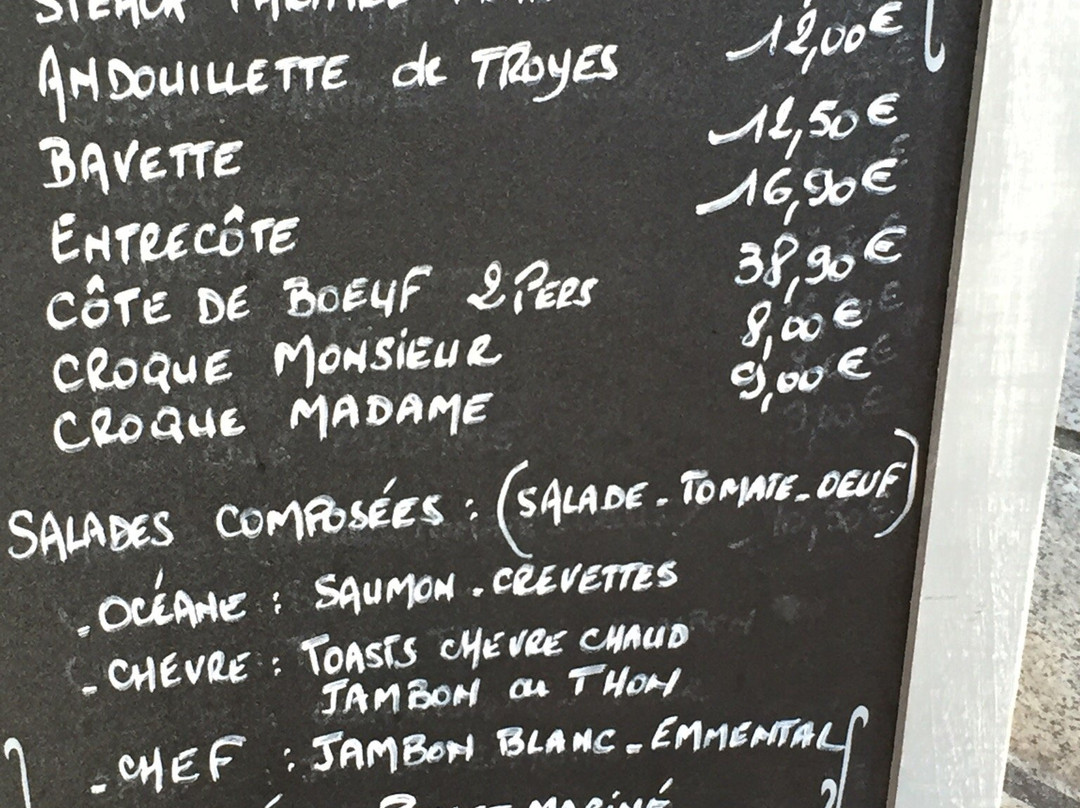 ANDOUILLETTE de TROYES 12,00€
BAVETTE 12,50€
ENTRECÔTE 16,90€
CÔTE DE BOEUF 2 PERS 38,90€
CROQUE MONSIEUR 8,00€
CROQUE MADAME 9,00€
SALADES COMPOSÉES : (SALADE - TOMATE - OEUF)
- OCÉANE : SAUMON - CREVETTES
- CHEVRE : TOASTS CHÉVRE CHAUD
JAMBON ou THON
- CHEF : JAMBON BLANC - EMMENTAL
MARINÉ